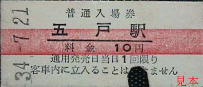 普通入場券
五戸駅
料金10円
通用発売日当日1回限り
客車内に立入ることはできません
34.7.21
見本